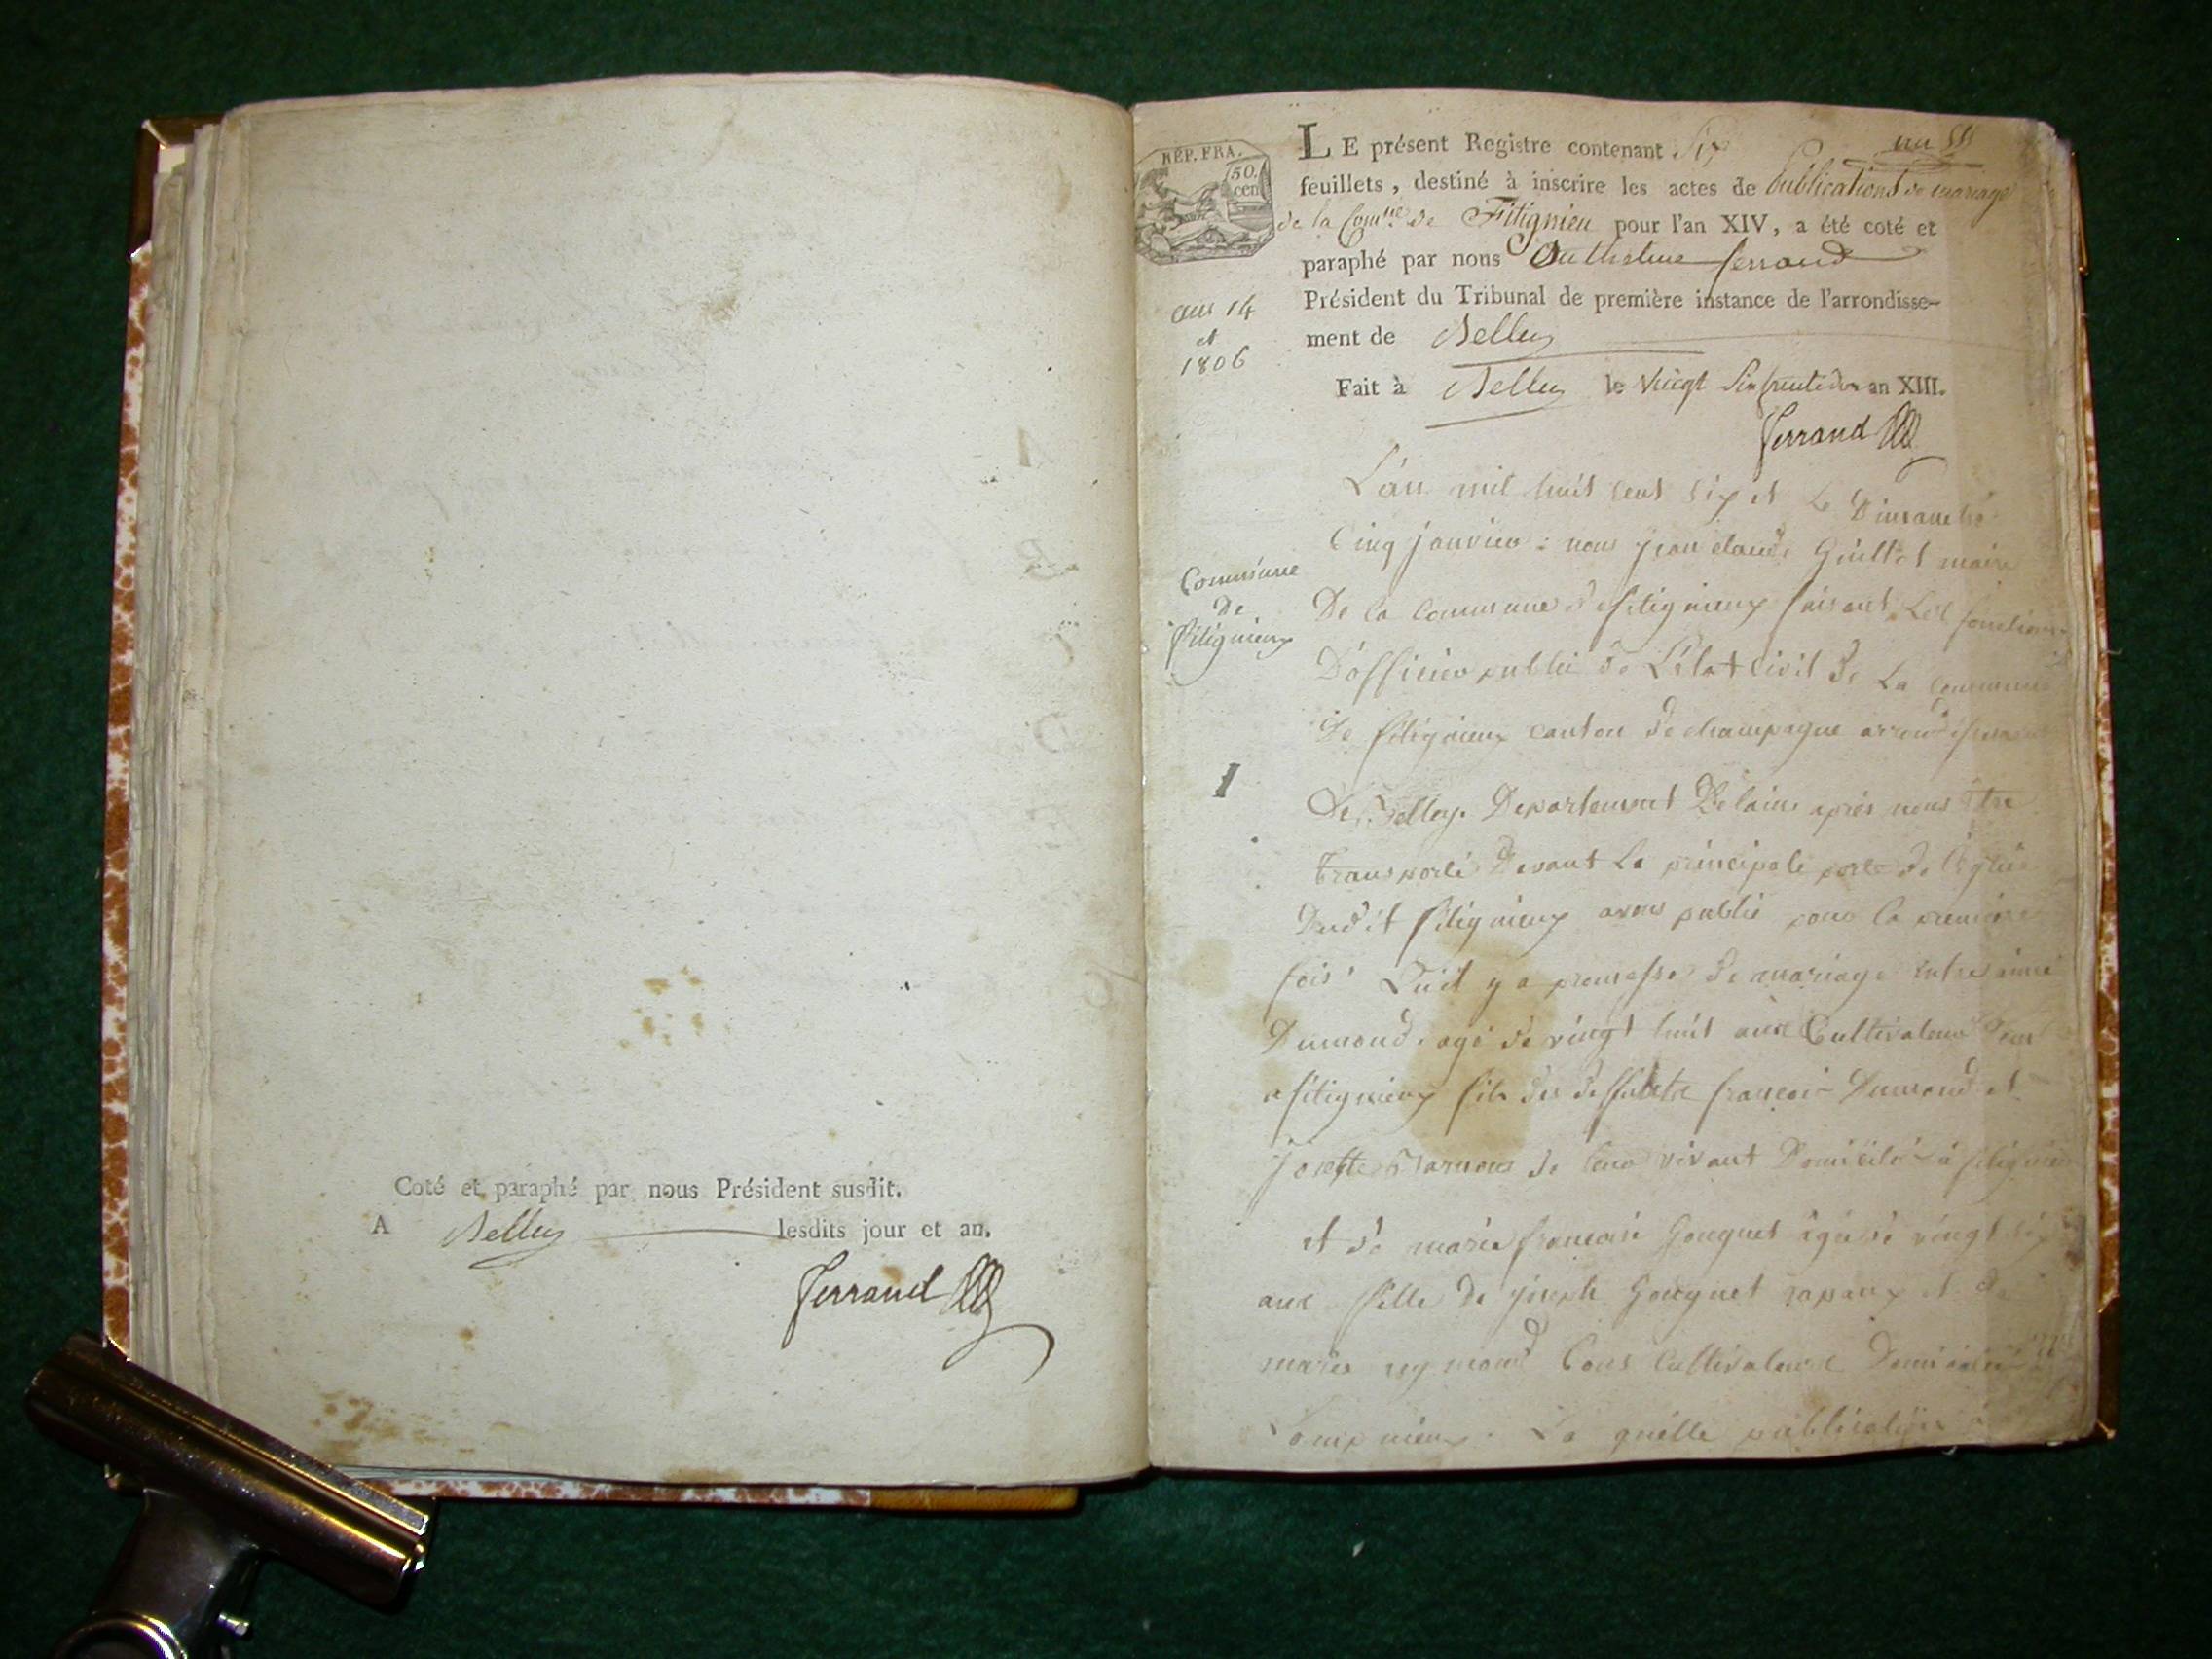 Coté et paraphé par nous Président susdit.
A Belley lesdits jour et an.
Ferrand
RÉP. FRA.
50.
cen
LE présent Registre contenant Six
un
feuillets, destiné à inscrire les actes de Publications de mariage
de la Comne de Fitignieu pour l'an XIV, a été coté et
paraphé par nous Anthelme ferrand
Président du Tribunal de première instance de l'arrondisse-
ment de Belley
Fait à Belley le vingt Six fructidor an XIII.
Ferrand
ans 14
et
1806
L'an mil huit cent six et le Dimanche
Cinq janvier : nous jean claude Guillot maire
Commune
De
fitignieux
De la Commune de fitignieux faisant Les fonctions
D'officier public de L'état civil de La Commune
De fitignieux canton de champagne arrondissement
1
De Belley. Departement De lain, après nous être
transporté Devant La principale porte de l'eglise
Dudit fitignieux avons publié pour la premiere
fois Qu'il y a promesse de mariage entre aimé
Dumond, agé de vingt huit ans Cultivateur
a fitignieux fils des deffunts françois Dumond et
josette de leur vivant Domiciliés à fitignieux
et de marie françoise Gouguet agée de vingt six
ans fille de joseph Gouguet et de
marie reymond tous Cultivateurs Domiciliés
Lompnieux. La quelle publication